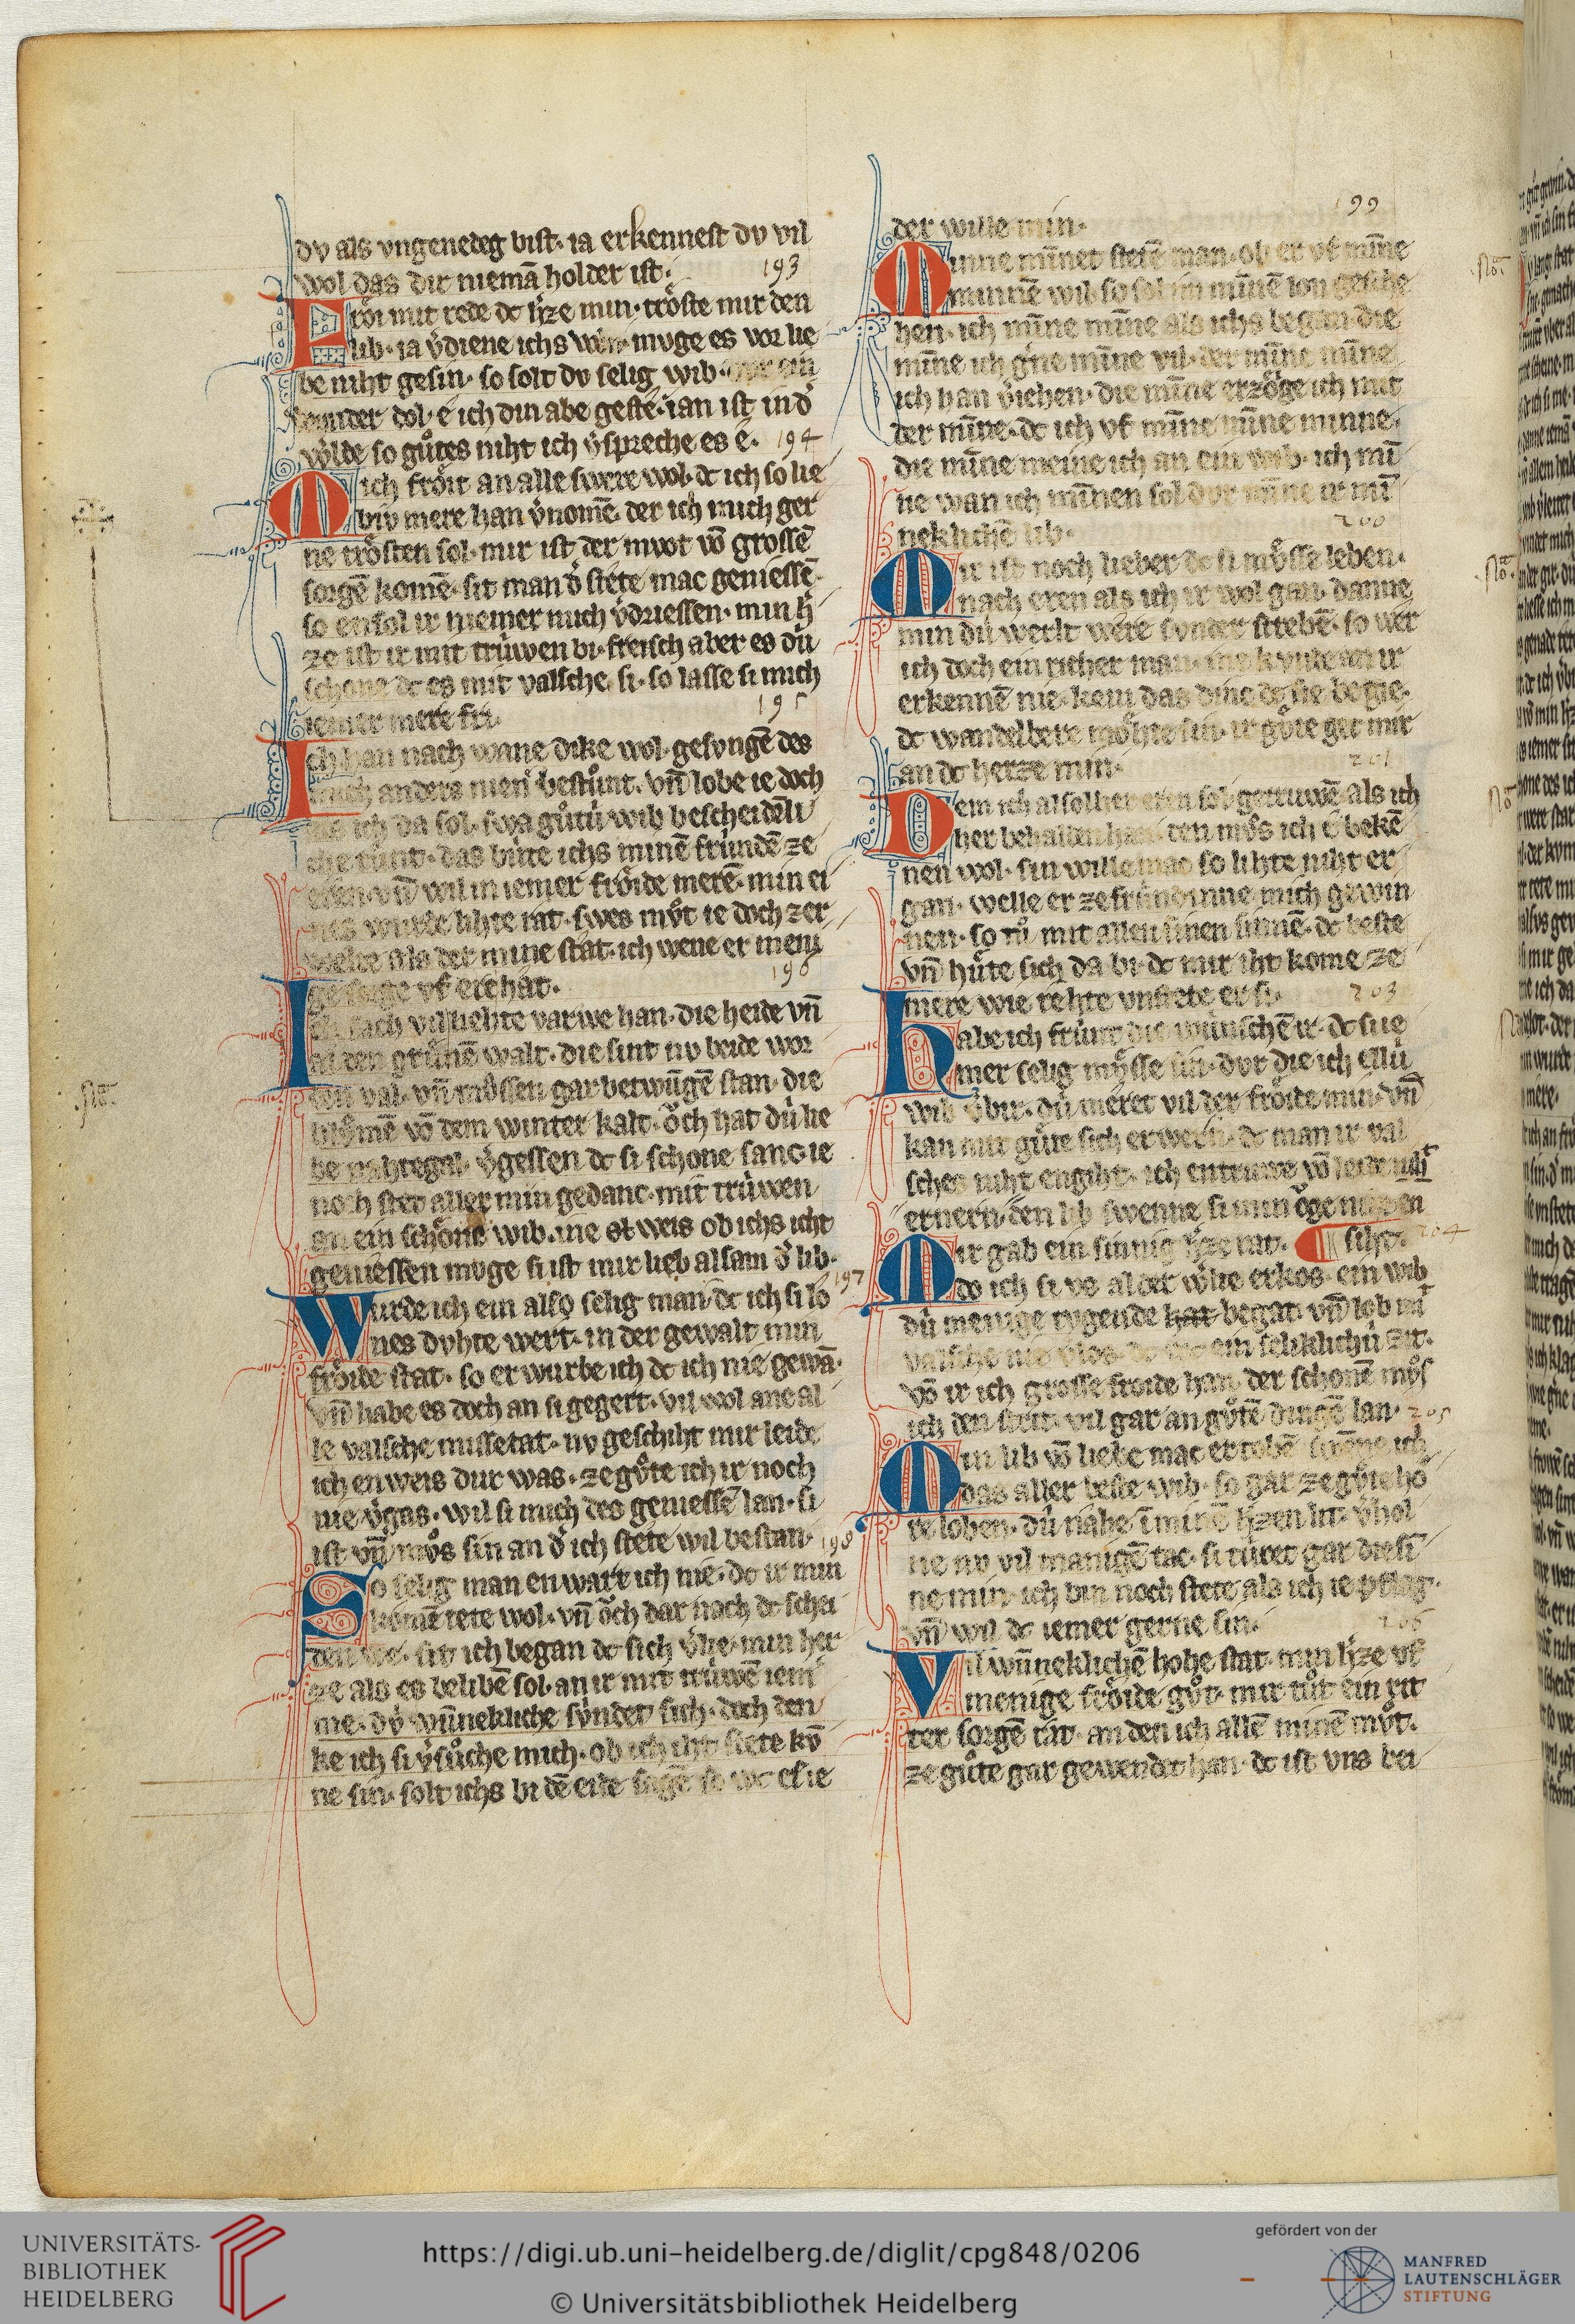 dv als vngenedeg bist· ia erkennest dv vil
wol das dir niemā holder ist·
193
Fröi mit rede dc h̾ze min· tröste mir den
lib· ia v̾diene ichs muge es vor lie
be niht gesin· so solt dv selig wib
kumder dol· e ich din abe geste· ian ist in d̾
w̾lde so gůtes niht ich v̾spreche es e· 194
Mich fröit an alle swere wol· dc ich so lie
biv mere han v̾nomē· der ich mich ger
ne trösten sol· mir ist der mvot vō grossē
sorgē komē· sit man d̾ stete mac geniessē·
so ensol ir niemer mich v̾driessen· min h̾
ze ist ir mit trüwen bi· freisch aber es dü
schone dc es mit valsche si· so lasse si mich
iemer mere fri·
195
Ich han nach wane dike wol· gesvngē des
mich anders nien̾ bestůnt· vn̄ lobe ie doch
ich da sol· swa gůtü wib bescheidēli
che tůnt· das bůte ichs minē fründē ze
eren· vn̄ wil in iemer fröide merē· min ei
nes wurde lihte rat· swes můt ie doch zer
welte als der mine stat· ich wene er meni
ge sorge vf erehat·
196
Ich sach vil liehte varwe han· die heide vn̄
al den grůnē walt· die sint nv beide wor
den val· vn̄ můssen gar betwūgē stan· die
blůmē vō dem winter kalt· öch hat dü lie
be nahtegal· v̾gessen dc si schone sanc· ie
noch stet aller min gedanc· mit trüwen
an ein schöne wib· ine weis ob ichs icht
geniessen muge si ist mir lieb alsam d̾ lib·
197
Wurde ich ein also selig man· dc ich si lo
nes dvhte wert· in der gewalt min
fröide stat· so erwurbe ich dc ich nie gewā·
vn̄ habe es doch an si gegert· vil wol ane al
le valsche missetat· nv geschiht mir leide
ich enweis dur was· ze gůte ich ir noch
nie v̾gas· wil si mich des geniessē lan· si
ist vn̄ můs sin an d̾ ich stete wil bestan· 198
So selig man enwart ich nie· dc ir min
komē tete wol· vn̄ öch dar nach dc schei
den we· sit ich began dc sich v̾lie· min her
ze als es belibē sol· an ir mit trüwē iem̾
me· dü wūnekliche sündet sich· doch den
ke ich si v̾sůche mich· ob ich iht stete kō
ne sin· solt ichs bi dē eide sagē so wc es ie
der wille min·
199
Minne minnet stetē man· ob er vf mīne
minnē wil· so sol im minnē lon gesche
hen· ich mīne mīne als ichs began· die
mīne ich g̾ne mīne vil· der mīne mīne
ich han v̾iehen· die mīne erzöge ich mit
der mīne· dc ich vf mīne mīne minne·
die mīne meine ich an ein wib· ich mī
ne wan ich minnen sol dvr mīne ir mī
neklichē lib·
200
Mir ist noch lieber dc si můsse leben·
nach eren als ich ir wol gan· danne
min dü werlt were svnder strebē· so wer
ich doch ein richer man· ir
erkennē nie· kein das dinc dc sie begie·
dc wandelbere möhte sin· ir gůte get mir
an dc herze min·
201
Dem ich alsolher eren sol· getruwē als ich
her behalden han· den můs ich e bekē
nen wol· sin wille mac so lihte niht er
gan· welle er ze fründinne mich gewin
nen· so tů mit allen sinen sinnē· dc beste
vn̄ hůte sich da bi· dc mir iht kome ze
mere wie rehte vnstete er si·
203
Habe ich frünt die wünschē ir· dc si ie
mer selig můsse sin· dvr die ich ellü
wib v̾bir· dü meret vil der fröide min· vn̄
kan mir gůte sich erwern· dc man ir val
sches niht engiht· ich entruwe vō leide mich
ernern· den lib swenne si min öge niht en
siht· 204
Mir gab ein sinnig h̾ze rat·
do ich si vs al der w̾lte erkos· ein wib
dü menige tvgende hat begat· vn̄ lob mit
valsche nie v̾los· ein seliklichü zit·
vō ir ich grosse froide han· der schonē můs
ich den strit· vil gar an gůtē dingē lan· 205
Min lib vō liebe mac ertobē· swēne ich
das aller beste wib· so gar ze gůte hö
re loben· dü nahe ī minē h̾zen lit· v̾hol
ne nv vil manigē tac· si türet gar die si
ne min· ich bin noch stete als ich ie pflag·
vn̄ wil dc iemer gerne sin·
206
Vil wūneklichē hohe stat· min h̾ze vf
menige fröide gůt· mir tůt ein rit
ter sorgē rat· an den ich allē minē můt·
ze gůte gar gewendet han· dc ist vns bei
UNIVERSITÄTS-
BIBLIOTHEK
HEIDELBERG
https://digi.ub.uni-heidelberg.de/diglit/cpg848/0206
© Universitätsbibliothek Heidelberg
gefördert von der
MANFRED
LAUTENSCHLÄGER
STIFTUNG